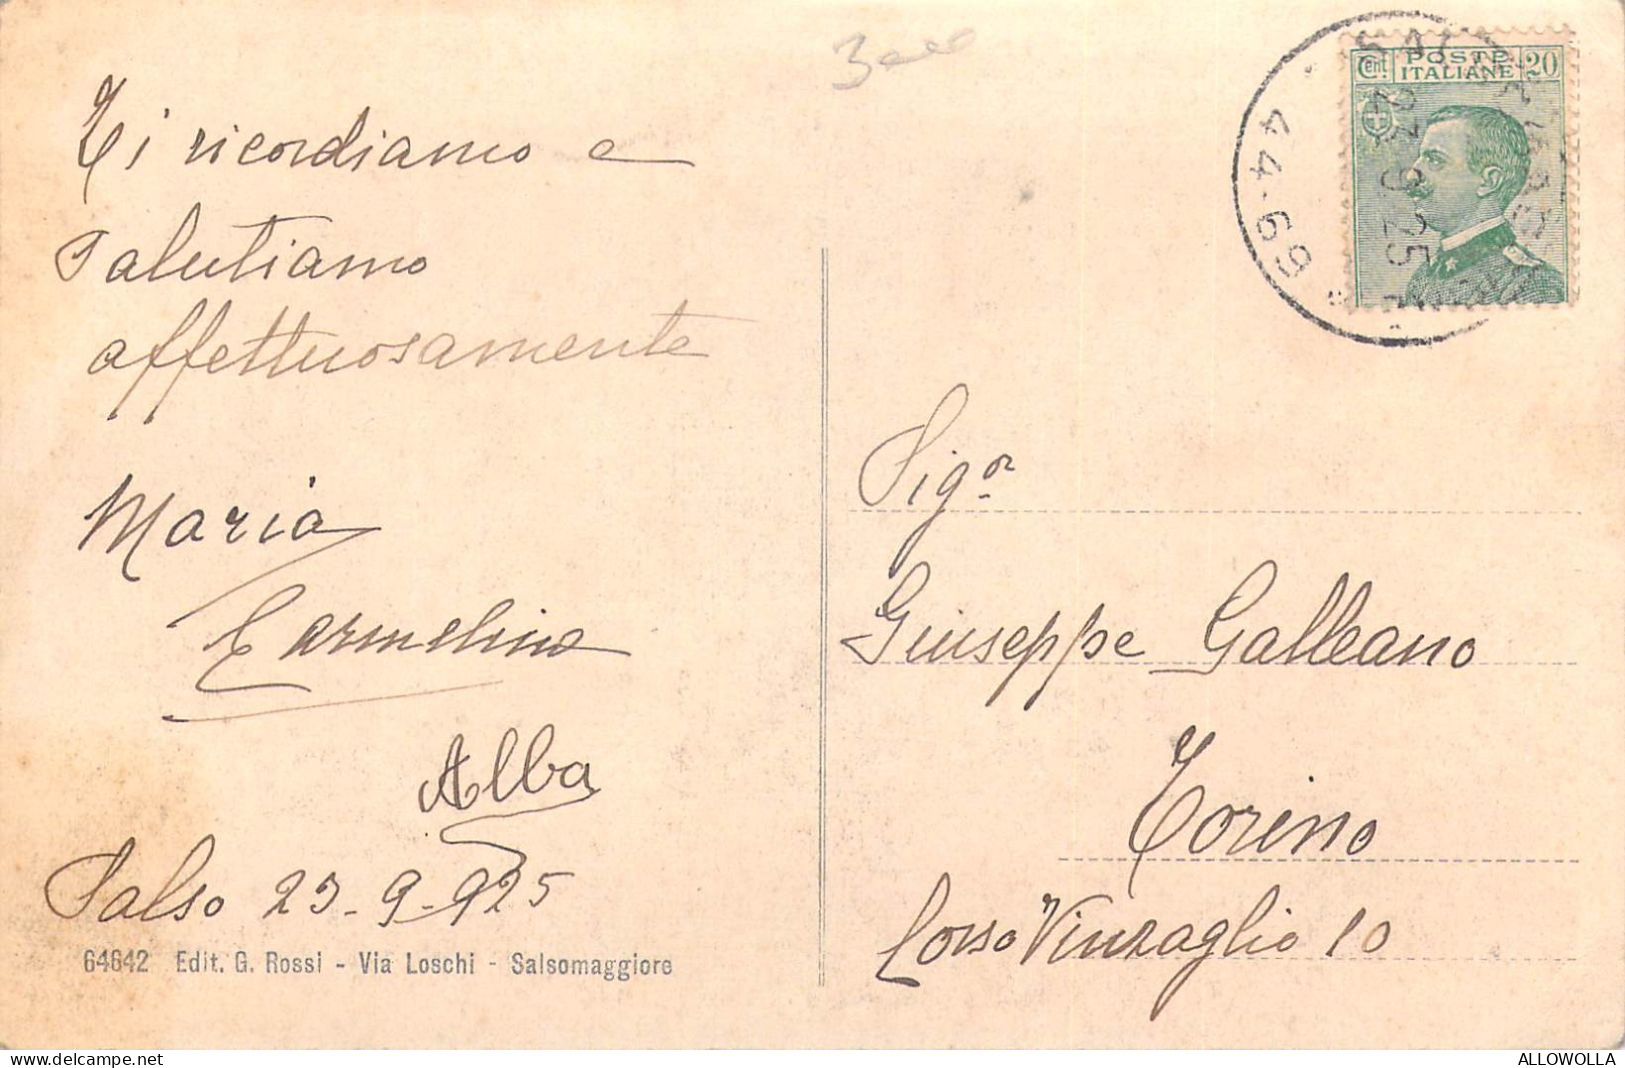 3000
Ti ricordiamo e
salutiamo
affettuosamente
Maria
Carmelina
Alba
Salso 23-9-925
64642 Edit. G. Rossi - Via Loschi - Salsomaggiore
Cent. POSTE ITALIANE 20
44-69
23 9 25
Sigor
Giuseppe Galleano
Torino
Corso Vinzaglio 10
ALLOWOLLA